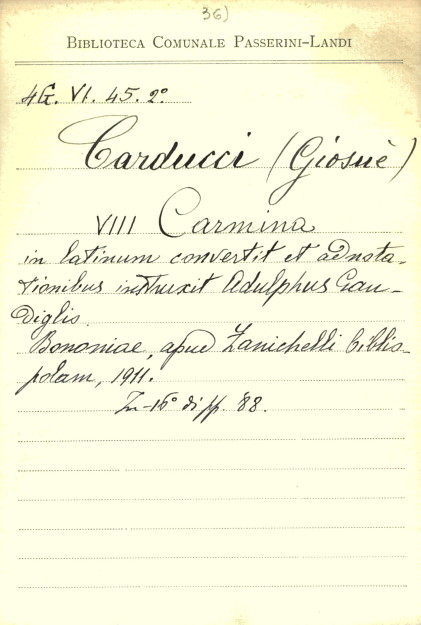 36)
BIBLIOTECA COMUNALE PASSERINI-LANDI
4G. VI. 45. 2º
Carducci (Giosuè)
VIII Carmina
in latinum convertit et adnota-
tionibus instruxit Adulphus Gan-
diglis.
Bononiae, apud Zanichelli biblio-
polam, 1911.
In-16º di pp. 88.